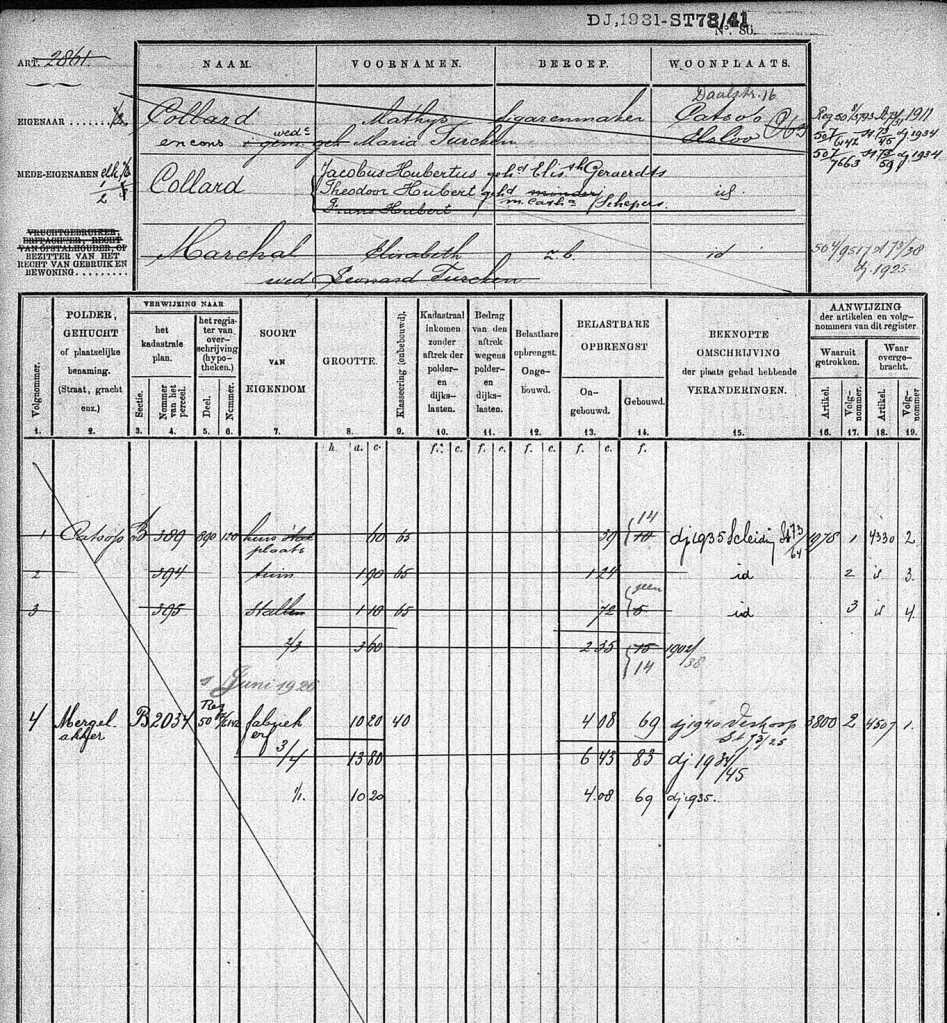 DJ,1931-ST73/41
No. 86.
ART. 2861.
NAAM. VOORNAMEN. BEROEP. WOONPLAATS.
Daalstr. 16
EIGENAAR Collard Mathys sigarenmaker Catsop
en cons wede Maria Turchen Elsloo
dj 1911
dj 1934
dj 1934
MEDE-EIGENAREN
1/2
Collard
Jacobus Hubertus geh.d Elis.th Geraerdts
Theodoor Hubert geh.d minderj
Frans Hubert m. Cath.a Schepers
id
VRUCHTGEBRUIKER,
ERFPACHTER, RECHT
VAN OPSTALHOUDER, OF
BEZITTER VAN HET
RECHT VAN GEBRUIK EN
BEWONING
Marchal Elisabeth z.b. id
wed Leonard Turchen
dj 1925
Volgnummer.
POLDER, GEHUCHT of plaatselijke benaming. (Straat, gracht enz.)
VERWIJZING NAAR
het kadastrale plan.
Sectie.
Nommer van het perceel.
het register van overschrijving (hypotheken.)
Deel.
Nommer.
SOORT VAN EIGENDOM
GROOTTE.
Klasseering (onbebouwd.)
Kadastraal inkomen zonder aftrek der polder- en dijkslasten.
Bedrag van den aftrek wegens polder- en dijkslasten.
Belastbare opbrengst. Ongebouwd.
BELASTBARE OPBRENGST
Ongebouwd.
Gebouwd.
BEKNOPTE OMSCHRIJVING der plaats gehad hebbende VERANDERINGEN.
AANWIJZING der artikelen en volgnommers van dit register.
Waaruit getrokken.
Waar overgebracht.
Artikel. Volgnommer. Artikel. Volgnommer.
1. 2. 3. 4. 5. 6. 7. 8. 9. 10. 11. 12. 13. 14. 15. 16. 17. 18. 19.
h. a. c. f. c. f. c. f. c. f. c. f.
14
1 Catsop B 389 890 120 huis stal plaats 60 65 39 dj 1935 Scheiding St 73/64 1 4330 2
2 394 tuin 1 90 65 1 24 id 2 id 3.
geen
3 395 Stallen 1 10 65 72 5 id 3 id 4
2/3 3 60 2 35 15 1902/38
14
Juni 1926
4 Mergelakker B 2034 Reg 50 fabriek erf 10 20 40 4 08 69 dj 1940 Verkoop St 73/25 3800 2 4507 1.
3/4 13 80 6 43 83 dj 1934/45
1/1. 10 20 4.08 69 dj 1935.